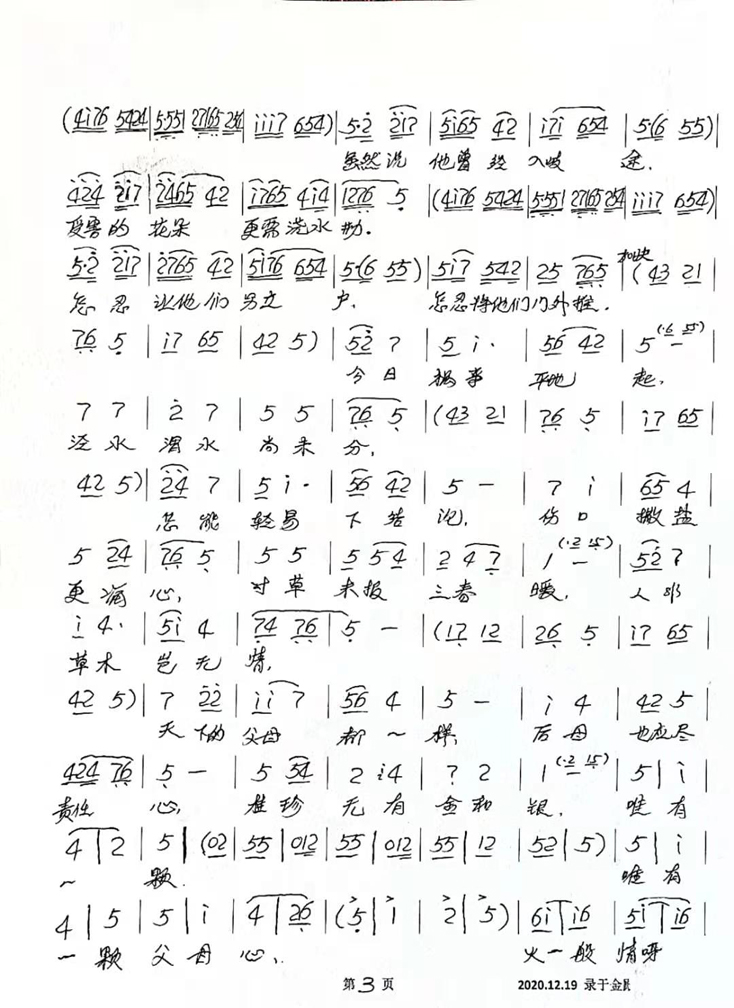 (4i76 5424|5·551 2765 25|iii7 654)|5·2 217|5i65 42|i7i 654|5·(6 55)|
虽然说 他曾经 入歧 途.
424 217|2465 42|i765 4i4|1276 5|(4i76 5424|5·551 2765 254|iii7 654)|
受害的 花朵 更需浇水 勤.
5·2 217|2765 42|5i76 654|5·(6 55)|5i7 542|25 765|(43 21|
加快
怎忍 让他们 另立 户. 怎忍将他们门外推.
76 5|i7 65|42 5)|52 7|5 i·|56 42|5 (·6 55) –|
今日 祸事 平地 起,
7 7|2 7|5 5|76 5|(43 21|76 5|i7 65|
泾水 浑水 尚未 分,
42 5)|24 7|5 i·|56 42|5 –|7 i|65 4|
怎能 轻易 下结 论, 伤口 撒盐
5 24|76 5|5 5|5 54|2 47|1 (·2 15) –|52 7|
更痛 心, 寸草 未报 三春 暖, 人非
i 4·|5i 4|74 76|5 –|(17 12|26 5|i7 65|
草木 岂无 情,
42 5)|7 22|ii 7|56 4|5 –|i 4|42 5|
天下的 父母 都一 样, 后母 也应尽
424 76|5 –|5 54|2 i4|7 2|1 (·2 15) –|5|i|
责任 心, 难珍 无有 金和 银, 唯有
4|2|5|(02|55|012|55|012|55|12|52|5)|5|i|
一 颗. 唯有
4|5|5|i|4|26|(5|1|2|5)|6i|i6|5i|i6|
一颗父母心, 火一般情呀
第 3 页
2020.12.19 录于金